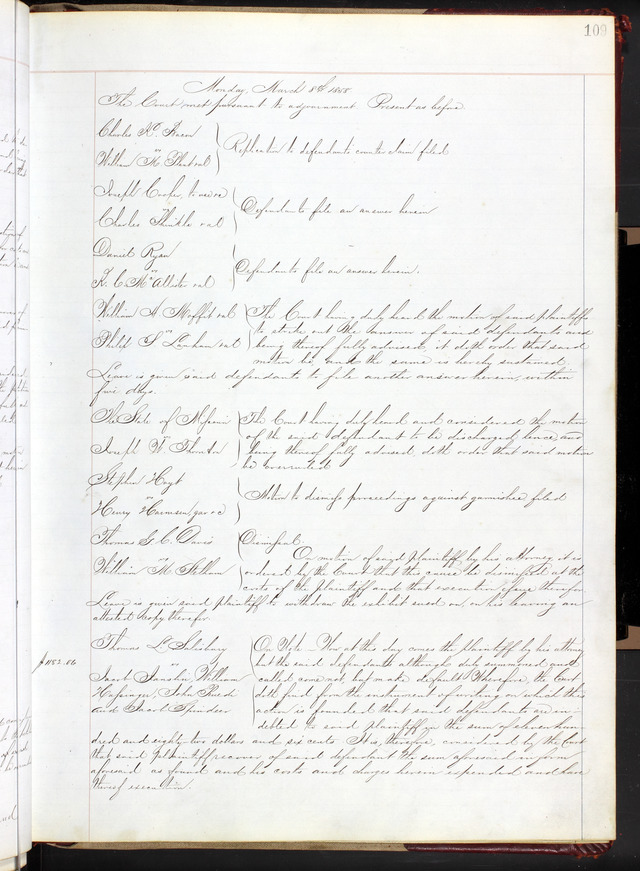 109
Monday, March 8th 1858
The Court met pursuant to adjournment. Present as before.
Charles
vs
William M
Replication to defendants counter claim filed
Joseph Cooper, to use &c
Charles Shinkle et al
Defendants file an answer herein
Daniel Ryan
vs
K. C. McAllister et al
Defendants file an answer herein.
William A Moffet et al
vs
Philip S Lanham et al
The Court having duly heard the motion of said plaintiffs
to strike out the answer of said defendants and
being thereof fully advised, it doth order that said
motion be and the same is hereby sustained.
Leave is given said defendants to file another answer herein, within
five days.
The State of Missouri
vs
Joseph W. Thornton
The Court having duly heard and considered the motion
of the said defendant to be discharged hence, and
being thereof fully advised doth order that said motion
be overruled
Stephen Hoyt
vs
Henry
Motion to dismiss proceedings against garnishee filed
Thomas G. C. Davis
vs
William M.
Dismissal.
On motion of said plaintiff by his attorney it is
ordered by the Court that this cause be dismissed at the
costs of the plaintiff and that execution issue therefor
Leave is given said plaintiff to withdraw the exhibit sued on, on his leaving an
attested copy therefor
$1182.06
Thomas L. Salsbury
vs
Jacob William
John
and Jacob Spindler
On Note – Now at this day comes the plaintiff by his attorney
but the said defendants although duly summoned and
called come not, but make default Wherefore, the Court
doth find from the instrument of writing on which this
action is founded that said defendants are in-
debted to said plaintiff in the sum of eleven hun-
dred and eighty two dollars and six cents. It is, therefore, considered by the Court
that said plaintiff recover of said defendant the sum aforesaid in form
aforesaid as found and his costs and charges herein expended and have
thereof execution.